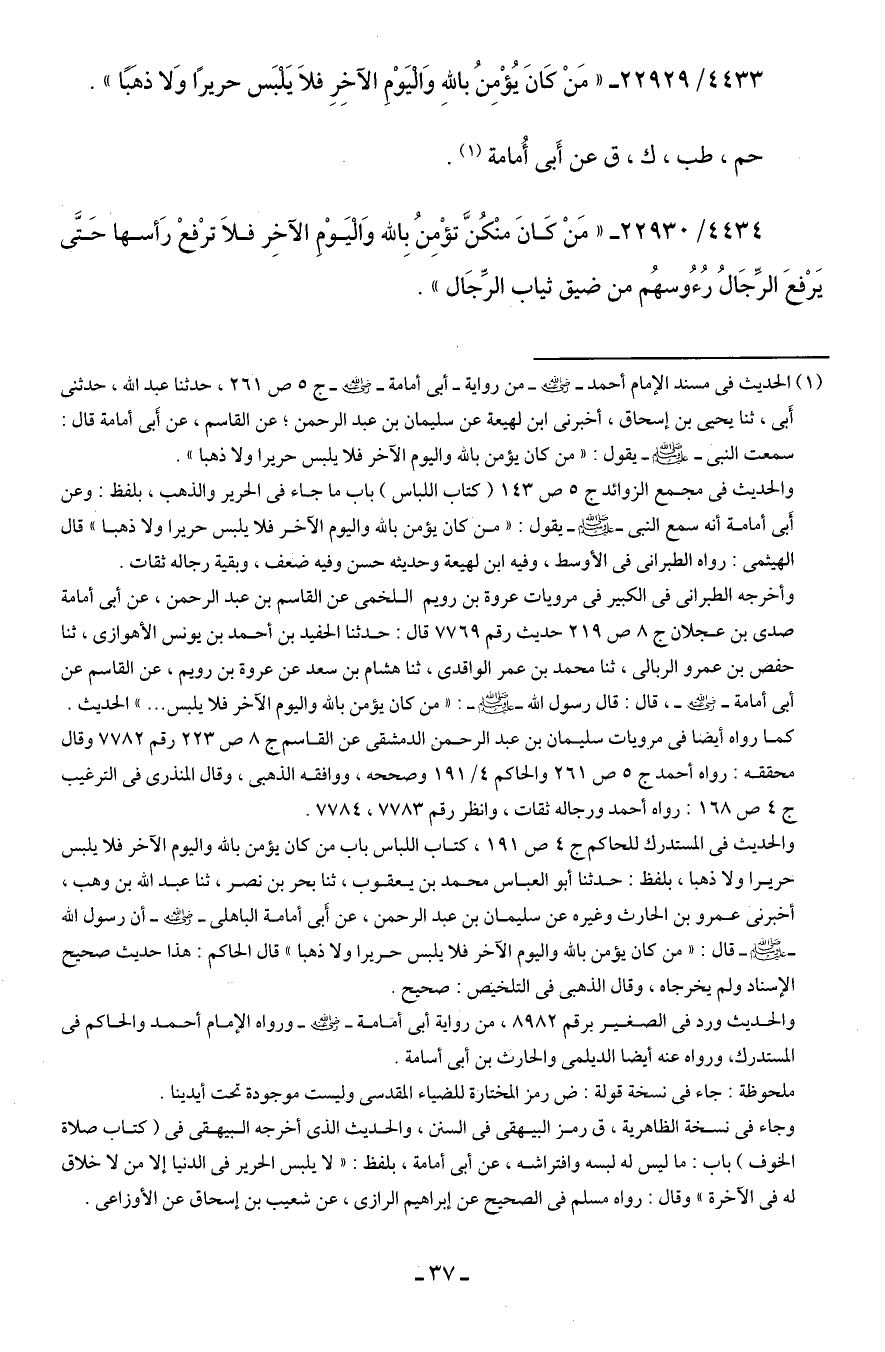 ٤٤٣٣/ ٢٢٩٢٩ـ « مَنْ كَانَ يُؤْمِنُ بالله وَالْيَوْمِ الآخِرِ فلاَ يَلْبَس حريرًا وَلا ذهَبًا » .
حم ، طب ، ك ، ق عن أَبى أُمامة (١) .
٤٤٣٤/ ٢٢٩٣٠ـ « مَنْ كَـانَ مِنْكُنَّ تؤْمِنُ بِالله واَلْيَـوْمِ الآخِر فـلاَ ترْفعْ رَأسـها حَـتَّى
يَرْفعَ الرِّجَالُ رُءُوسهُم من ضيق ثياب الرِّجَال » .
(١) الحديث فى مسند الإمام أحمد ـ رضي الله عنه ـ من رواية ـ أبى أمامة ـ رضي الله عنه ـ ج ٥ ص ٢٦١ ، حدثنا عبد الله ، حدثنى
أَبى ، ثنا يحيى بن إسحاق ، أخبرنى ابن لهيعة عن سليمان بن عبد الرحمن ؛ عن القاسم ، عن أَبى أمامة قال :
سمعت النبى ـ ﷺ ـ يقول : « من كان يؤمن بالله واليوم الآخر فلا يلبس حريرا ولا ذهبا » .
والحديث فى مجـمع الزوائد ج ٥ ص ١٤٣ ( كتاب اللباس ) باب ما جـاء فى الحرير والذهب ، بلفظ : وعن
أَبى أمامـة أنه سمع النبى ـ ﷺ ـ يقول : « مـن كان يؤمن بالله واليوم الآخـر فلا يلبس حريرا ولا ذهبـا » قال
الهيثمى : رواه الطبرانى فى الأوسط ، وفيه ابن لهيعة وحديثه حسن وفيه ضعف ، وبقية رجاله ثقات .
وأخرجه الطبرانى فى الكبير فى مرويات عروة بن رويم اللـخمى عن القاسم بن عبد الرحمن ، عن أبى أمامة
صدى بن عـجلان ج ٨ ص ٢١٩ حديث رقم ٧٧٦٩ قال : حـدثنا الحفيد بن أحـمد بن يونس الأهوازى ، ثنا
حفص بن عمرو الربالى ، ثنا محمد بن عمر الواقدى ، ثنا هشام بن سعد عن عروة بن رويم ، عن القاسم عن
أبى أمامة ـ رضي الله عنه ـ ، قال : قال رسول الله ـ ﷺ ـ : « من كان يؤمن بالله واليوم الآخر فلا يلبس... » الحديث .
كمـا رواه أيضا فى مرويات سليمـان بن عبد الرحـمن الدمشقى عن القاسم ج ٨ ص ٢٢٣ رقم ٧٧٨٢ وقال
محققـه : رواه أحمد ج ٥ ص ٢٦١ والحاكم ٤/ ١٩١ وصححه ، ووافقـه الذهبى ، وقال المنذرى فى الترغيب
ج ٤ ص ١٦٨ : رواه أحمد ورجاله ثقات ، وانظر رقم ٧٧٨٣ ، ٧٧٨٤ .
والحديث فى المستدرك للحاكم ج ٤ ص ١٩١ ، كتـاب اللباس باب من كان يؤمن بالله واليوم الآخر فلا يلبس
حريـرا ولا ذهبا ، بلفظ : حـدثنا أبو العباس محـمد بن يـعقـوب ، ثنا بحر بن نصـر ، ثنا عبـد الله بن وهب ،
أخبرنى عـمرو بن الحارث وغيره عن سليمـان بن عبد الرحمن ، عن أَبى أمامـة الباهلى ـ رضي الله عنه ـ أن رسول الله
ـ ﷺ ـ قال : « من كان يؤمن بالله واليوم الآخر فلا يلبس حـريرا ولا ذهبا » قال الحاكم : هذا حديث صحيح
الإسناد ولم يخرجاه ، وقال الذهبى فى التلخيص : صحيح .
والحـديث ورد فى الصـغـير برقم ٨٩٨٢ ، من رواية أبى أمَامـة ـ رضي الله عنه ـ ورواه الإمام أحـمـد والحـاكم فى
المستدرك، ورواه عنه أيضا الديلمى والحارث بن أبى أسامة .
ملحوظة : جاء فى نسخة قولة : ض رمز المختارة للضياء المقدسى وليست موجودة تحت أيدينا .
وجاء فى نسـخة الظاهرية ، ق رمـز البيـهقى فى السنن ، والحـديث الذى أخرجه الـبيهـقى فى ( كتـاب صلاة
الخوف ) باب : ما ليس له لبسه وافتراشـه ، عن أبى أمامة ، بلفظ : « لا يلبس الحرير فى الدنيا إلا من لا خلاق
له فى الآخرة » وقال : رواه مسلم فى الصحيح عن إبراهيم الرازى ، عن شعيب بن إسحاق عن الأوزاعى .
ـ ٣٧ ـ